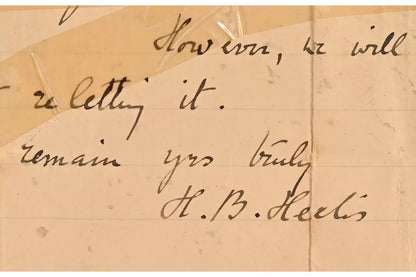 However, we will
re letting it.
remain yrs truly
H. B. Heelis